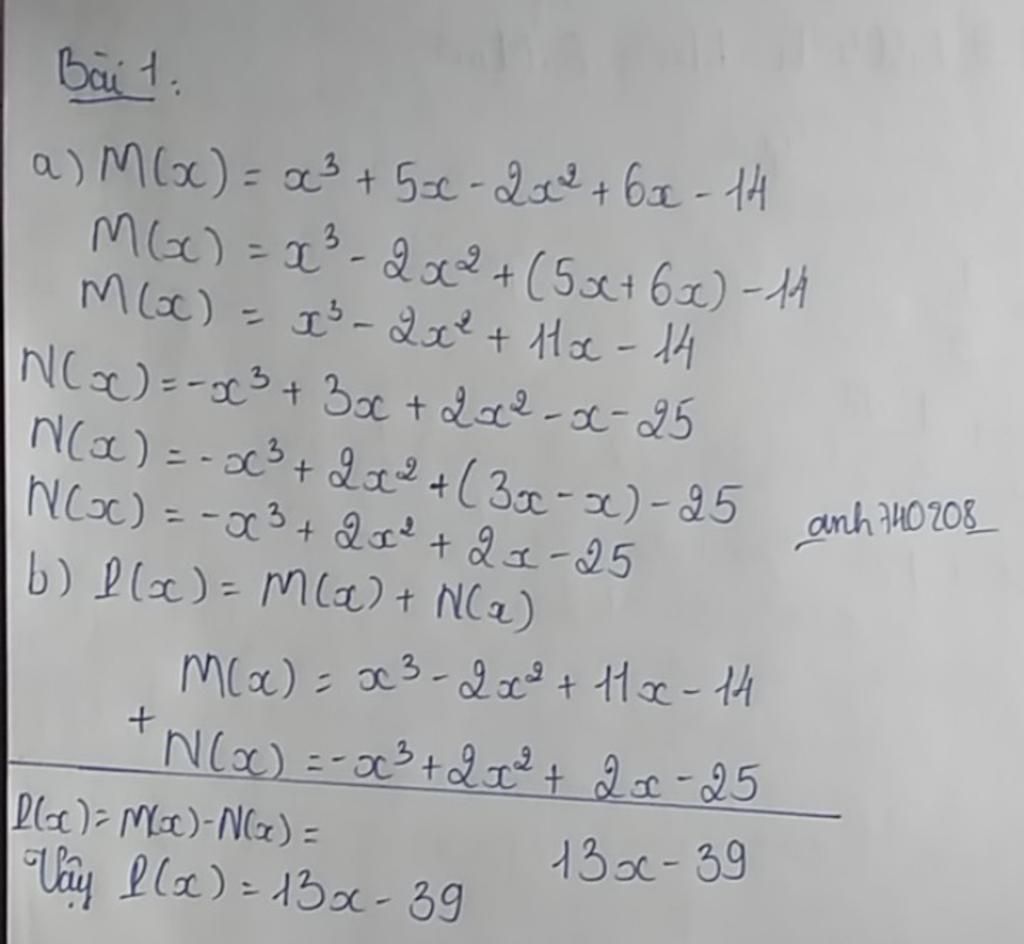 Bài 1:
a) M(x) = x³ + 5x - 2x² + 6x - 14
M(x) = x³ - 2x² + (5x + 6x) - 14
M(x) = x³ - 2x² + 11x - 14
N(x) = -x³ + 3x + 2x² - x - 25
N(x) = -x³ + 2x² + (3x - x) - 25
N(x) = -x³ + 2x² + 2x - 25
anh740208
b) P(x) = M(x) + N(x)
M(x) = x³ - 2x² + 11x - 14
+
N(x) = -x³ + 2x² + 2x - 25
P(x) = M(x) - N(x) = 13x - 39
Vậy P(x) = 13x - 39